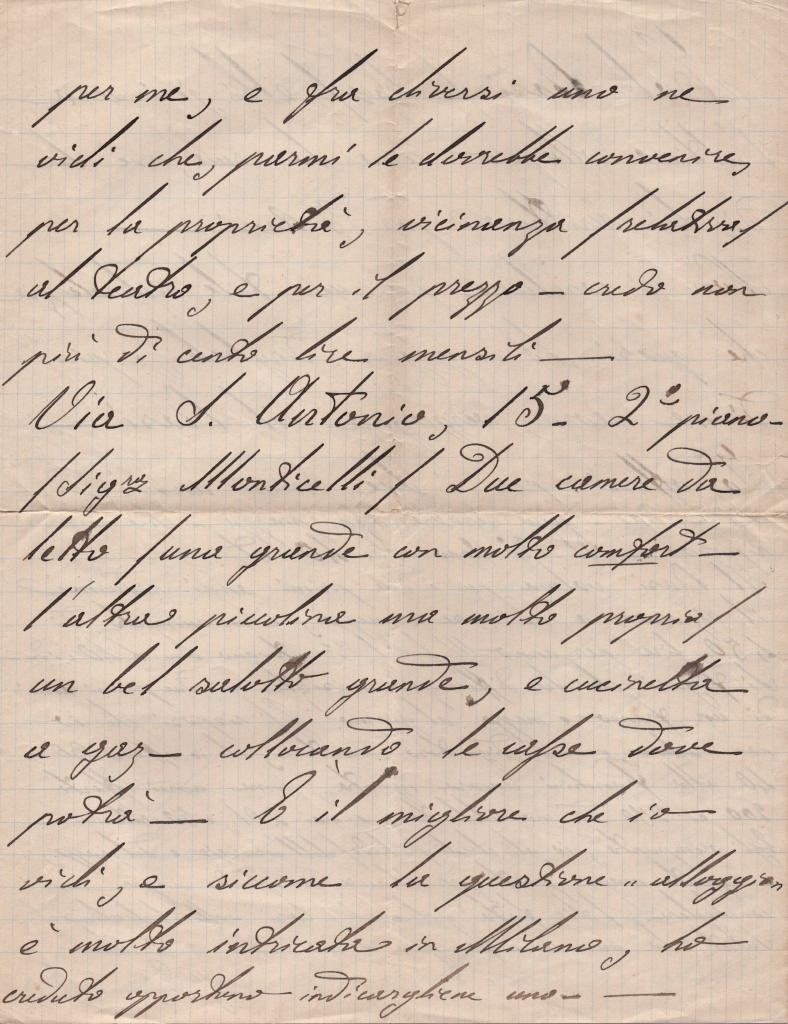 per me, e fra diversi uno ne
vidi che, parmi le dovrebbe convenire,
per la proprietà, vicinanza /relativa/
al teatro, e per il prezzo – credo non
più di cento lire mensili —
Via S. Antonio, 15 – 2º piano –
/Sigra Monticelli/ Due camere da
letto /una grande con molto comfort –
l'altra piccolina ma molto propria/
un bel salotto grande, e cucinetta
a gaz – collocando le casse dove
potrà — È il migliore che io
vidi, e siccome la questione „ alloggi „
è molto intricata in Milano, ho
creduto opportuno indicargliene uno – —